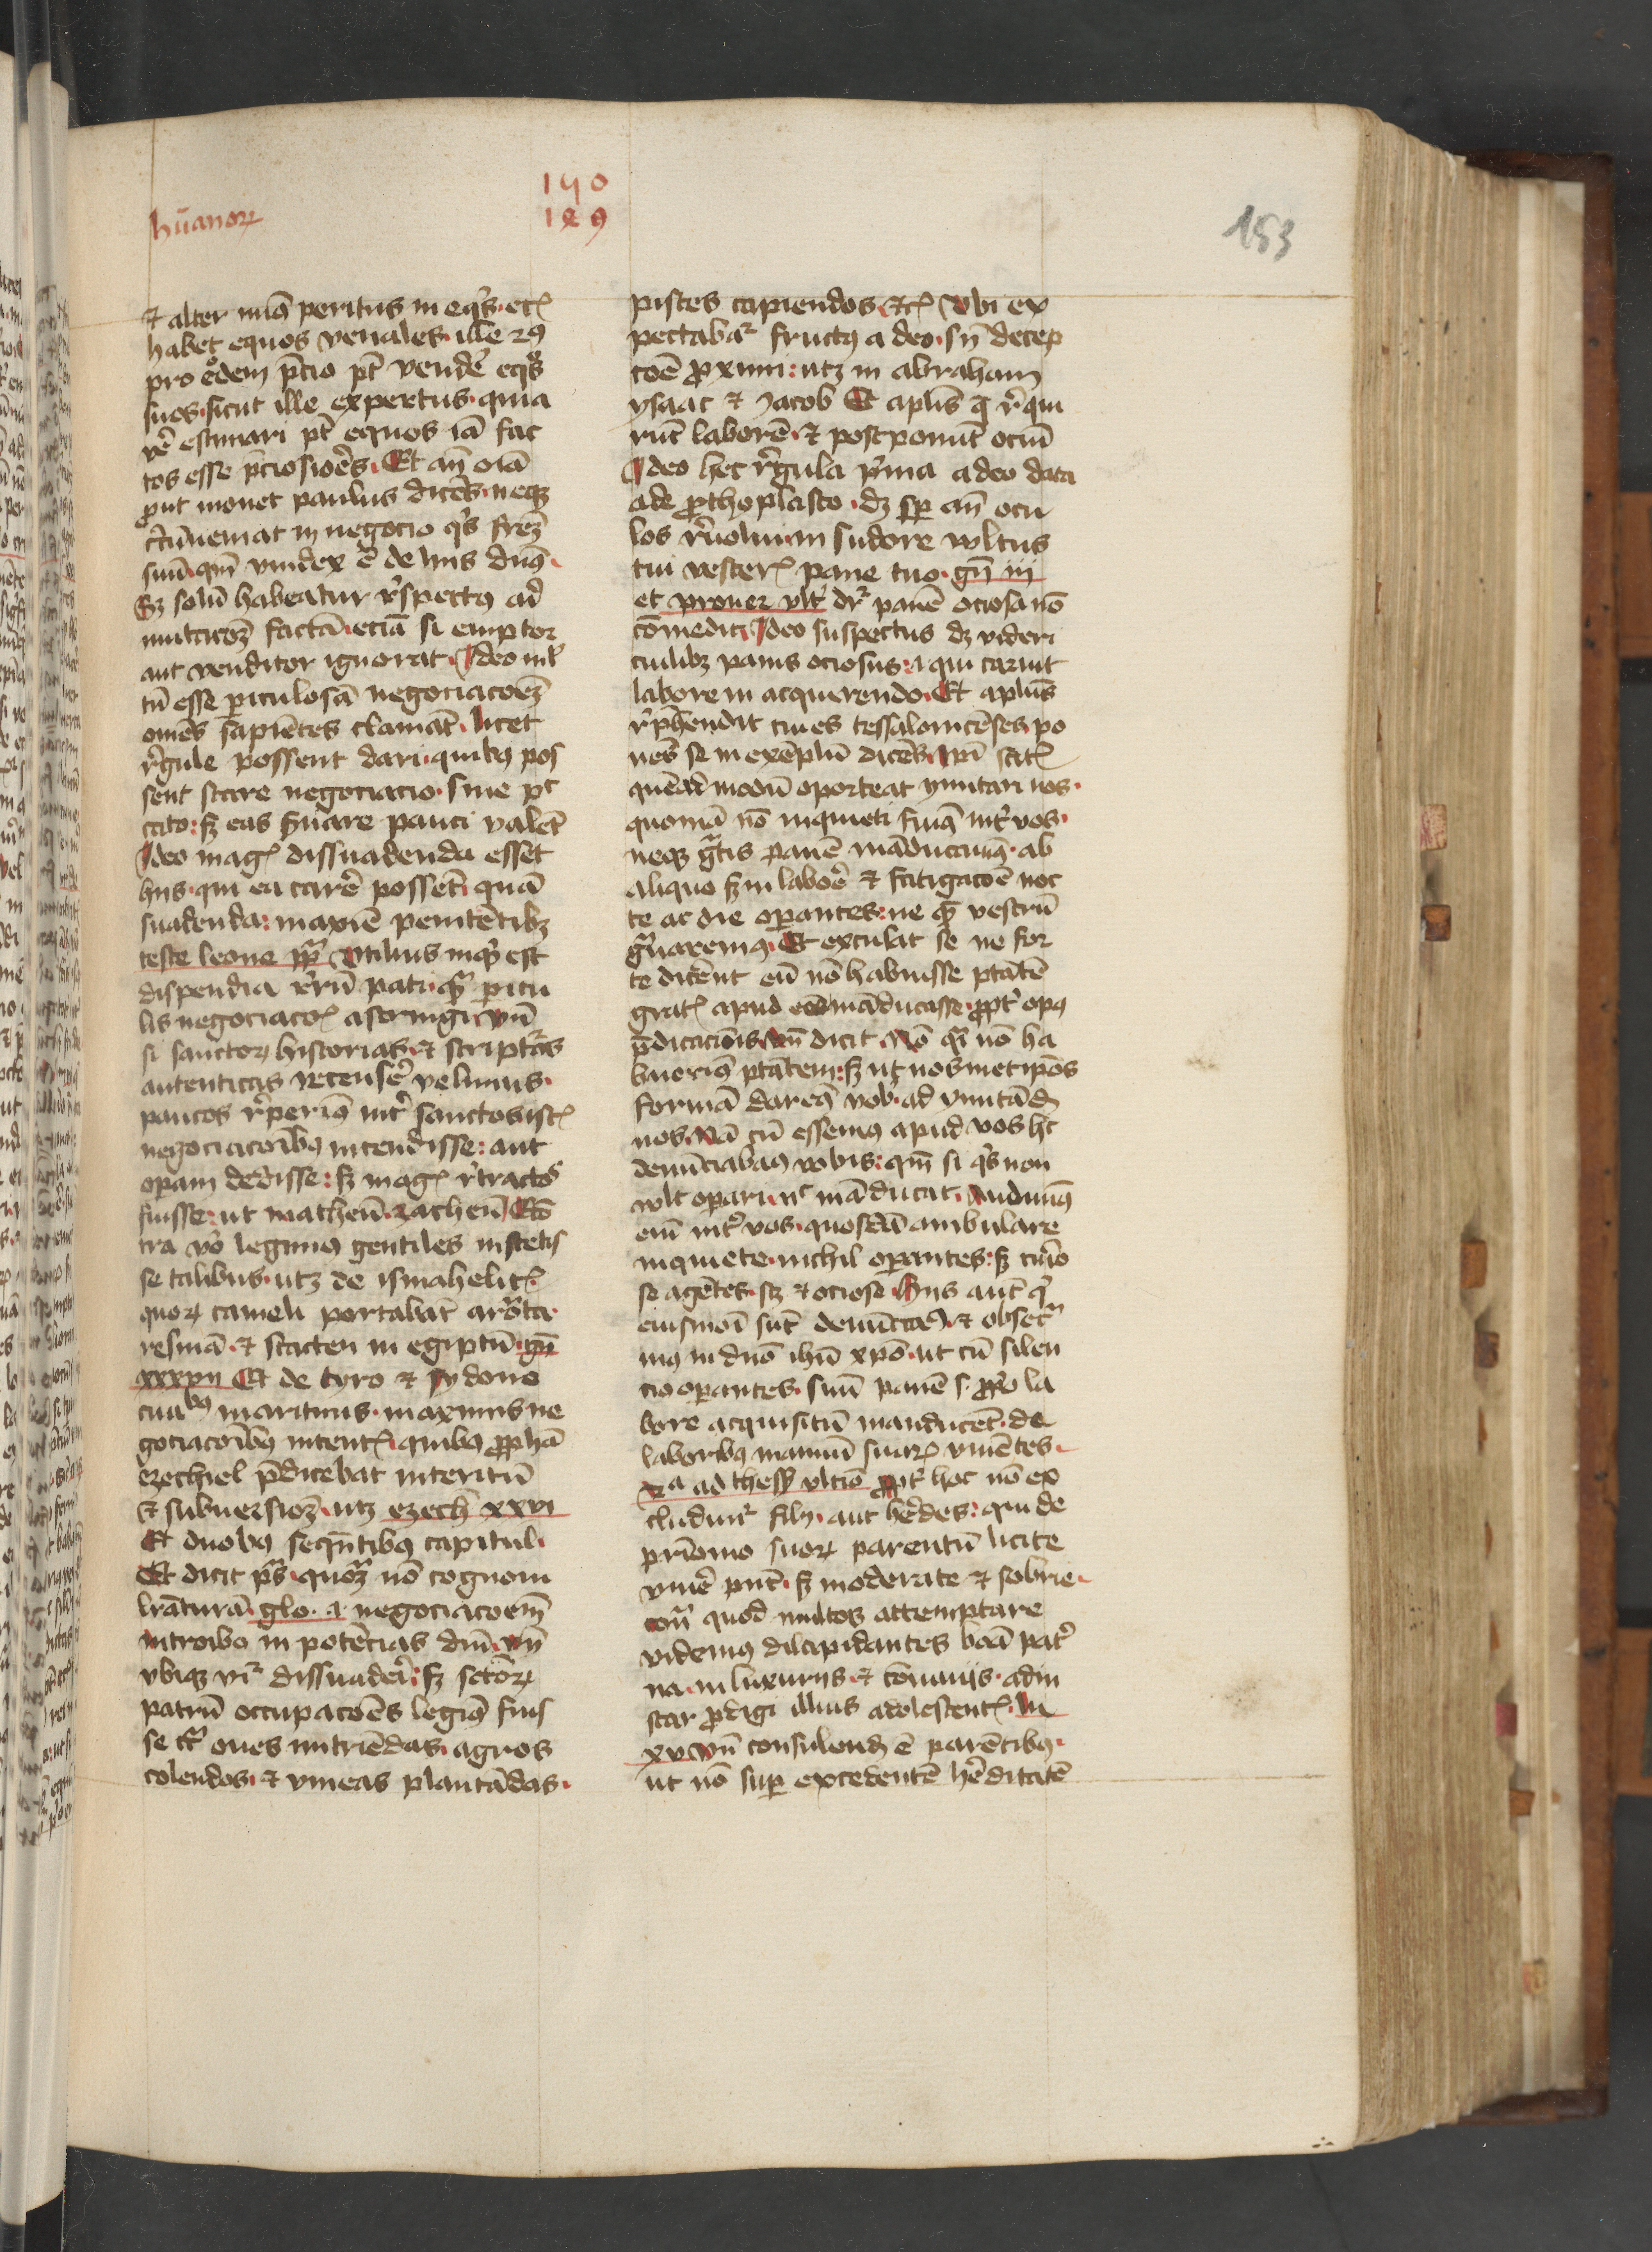 hūanoꝝ
140
129
153
et alter minꝰ peritus in eqͥs etꝫ
habet equos venales ille ꝯꝰ
pro eodem p̄cio pt̄ vendē eqͦs
suos sicut ille expertus quia
estimari pt̄ equos iā fac
tos esse p̄ciosioēs Et an̄ oīa
ꝓut monet paulus dicēs neqꝫ
cͥcūveniat in negocio qͥs frēꝫ
suū qm̄ vindex ē de hijs dnꝰ
Sꝫ solū habeatur rͥspectꝰ ad
factā eciā si emptor
aut venditor ignorat Ideo ml̓
tū esse ꝑiculosā negociacōeꝫ
omēs sapiētes clamāt licet
rͥgule possent dari quibꝰ pos
sent stare negociacio sine pͨ
cato sꝫ eas ẜuare pauci valēt
Ideo magꝭ dissuadenda esset
hijs qui ea carē possēt quā
suadenda maxīe penitētibꝫ
teste leone pp̄ Vtilius inqͥt est
dispendia rerū pati qͣ ꝑicu
lis negociacōꝭ astringi vn̄
si sanctoꝝ historias et scriptͣas
autenticas recensē velimus
paucos rͥperimꝰ int̓ sanctos istꝭ
negociacōibꝰ intendisse aut
oꝑam dedisse sꝫ magꝭ rͥtractos
fuisse ut matheū zacheū Ecō
tra vͦ legimꝰ gentiles institis
se talibus utꝫ de ismahelitꝭ
quoꝝ cameli portabāt arōta
resinā et stacten in egiptū gn̄
xxxvii Et de tyro et sydone
maritimis maximis ne
gociacōibꝰ intentꝭ quibꝰ ꝓphā
ezechiel p̄dicebat interitū
et subuersioēꝫ utꝫ ezech xxvi
Et duobꝰ seqn̄tibꝰ capitul
Et dicit pͣs qm̄ nō cognoui
lrāturā glo i negociacoēm
introibo in potēcias dnī vn̄
vbiqꝫ vr̄ dissuaderi sꝫ sctōꝝ
patrū occupacōēs legimꝰ fuis
se cͥ oues nutriēdas agros
colendos et vineas plantādas
pisces capiendos etꝫ Vbi ex
pectabaᷣ fructꝰ a deo sn̄ decep
coē ꝓximi utꝫ in abraham
ysaac et iacob Et aplīs q̄ rͥqui
rūt laborē et postponūt ociū
Ideo hec rͥgula pͥma a deo data
ade ꝓthoplasto dꝫ sꝑ an̄ ocu
los rͥuolui in sudore wltus
tui vescerꝭ pane tuo gn̄ iij
et prouer vlt̓ drͬ panē ociosa nō
cōmedit Ideo suspectus dꝫ videri
cuilibꝫ panis ociosus i qui caruit
labore in acquirendo Et aplūs
rͥphēndit ciues tessalonicēses po
nēs se in exēplū dicēs ipī scitꝭ
quēadmodū oporteat ymitari nos
quoniā nō inquieti fuimꝰ int̓ vos
neqꝫ gͣtis panē māducauimꝰ ab
aliquo sꝫ in laboē et fatigacoē noc
te ac die oꝑantes ne quē vestrū
gͣuaremꝰ Et exculat se ne for
te dicēnt eū nō habuisse ptātē
gratꝭ apud eos māducasse ꝓpt̓ opꝰ
p̄dicacōis vn̄ dicit Nō qͣi nō ha
buerimꝰ ptātem sꝫ ut nosmetipōs
formā daremꝰ vobͥ ad ymitādū
nos Nā cū essemꝰ apud vos hͨ
denūciabamꝰ vobis qm̄ si qͥs non
wlt oꝑari nͨ māducat Audiuimꝰ
eni̅ int̓ vos quosdā ambulare
inquiete nichil oꝑantes sꝫ cͥio
se agētes sꝫ et ociose Hijs aūt qͥ
eiusmōi sūt denūciamꝰ et obsecͣ
mꝰ in dnō ihū xpō ut cū silen
cio oꝑantes suū panē s ꝓpͦ la
bore acquisitū manducēt de
laboribꝰ manuū suarꝫ viuētes
ad thess vltīo ꝓpt̓ hoc nō ex
cluduntͬ filij aut hēdes qui de
pr̄imonio suoꝝ parentū licite
viuē pn̄t sꝫ moderate et sobrie
cōtͣ quod multos attemptare
videmꝰ dilapidantes bōa pat̓
na in luxurijs et cōmuijs adin
star ꝓdigi illius adolescentꝭ lu
xv vn̄ consulend̄ ē parētibꝰ
ut nō suꝑ excedentē hēditatē